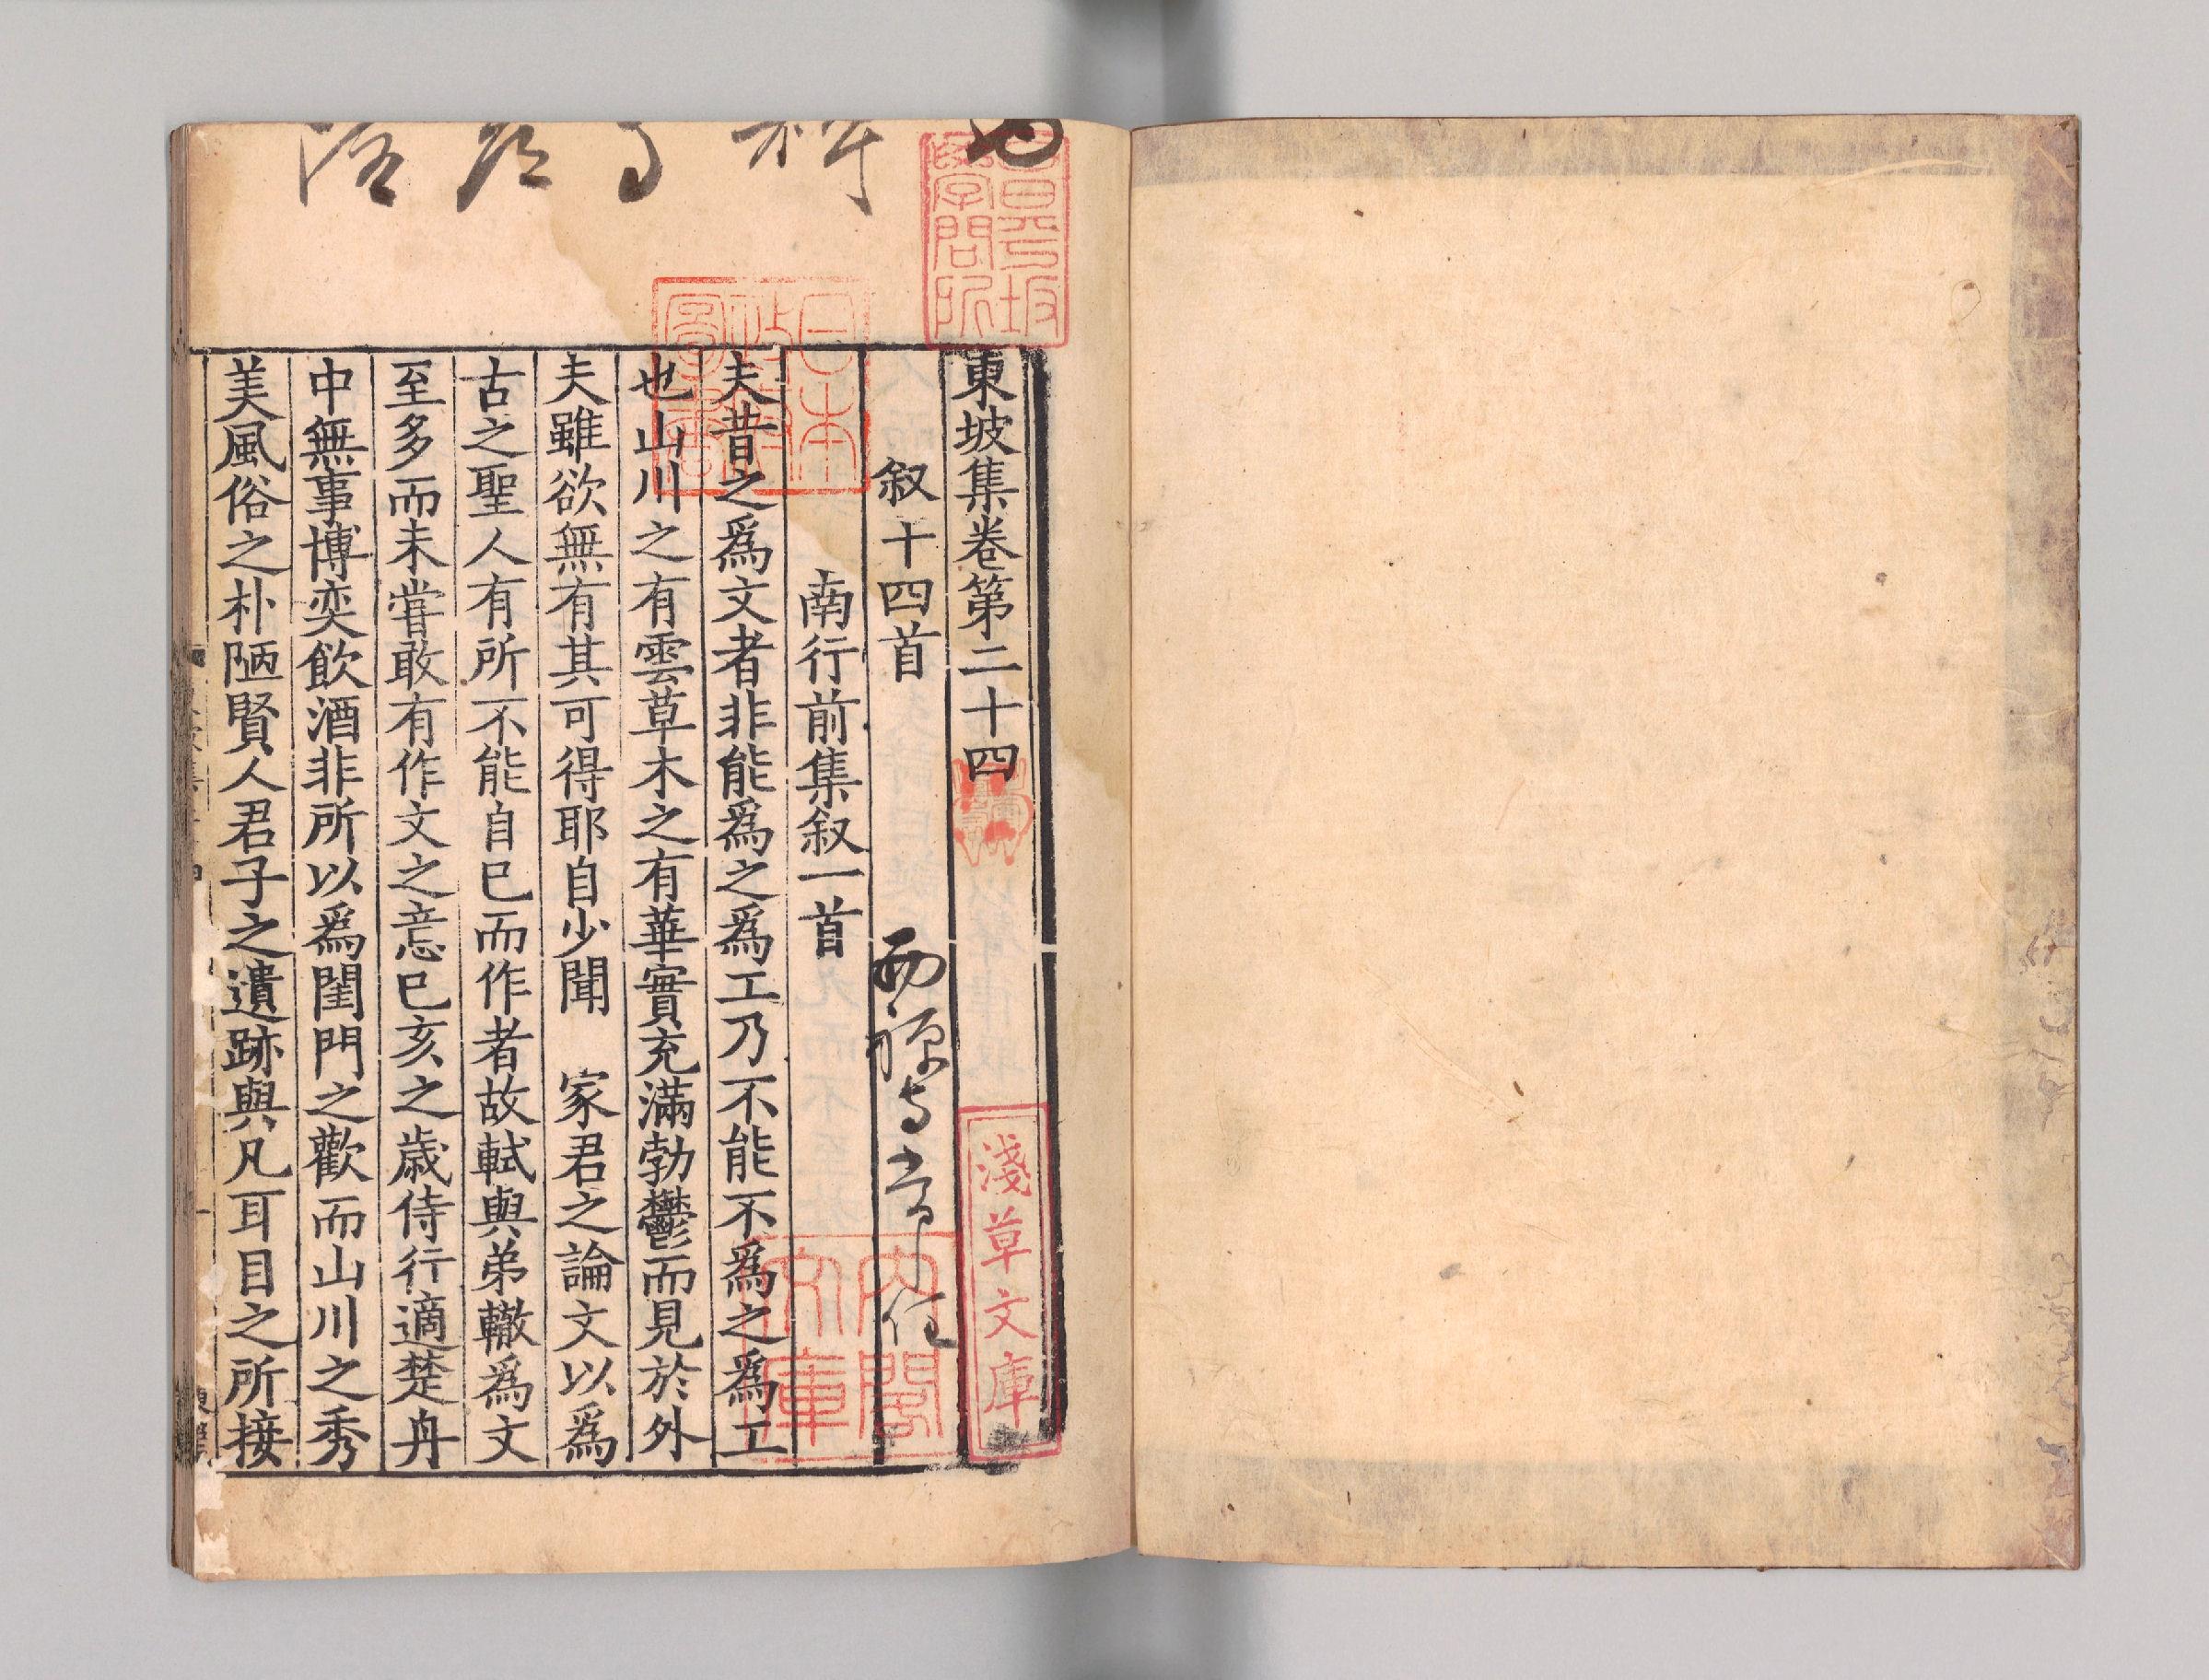 東坡集卷第二十四
叙十四首
南行前集叙一首
夫昔之爲文者非能爲之爲工乃不能不爲之爲工
也山川之有雲草木之有華實充滿勃鬱而見於外
夫雖欲無有其可得耶自少聞 家君之論文以爲
古之聖人有所不能自已而作者故軾與弟轍爲文
至多而未甞敢有作文之意己亥之歳侍行適楚舟
中無事博奕飲酒非所以爲閨門之歡而山川之秀
美風俗之朴陋賢人君子之遺跡與凡耳目之所接
昌平坂學問所
日本政府圖書
淺草文庫
内閣文庫